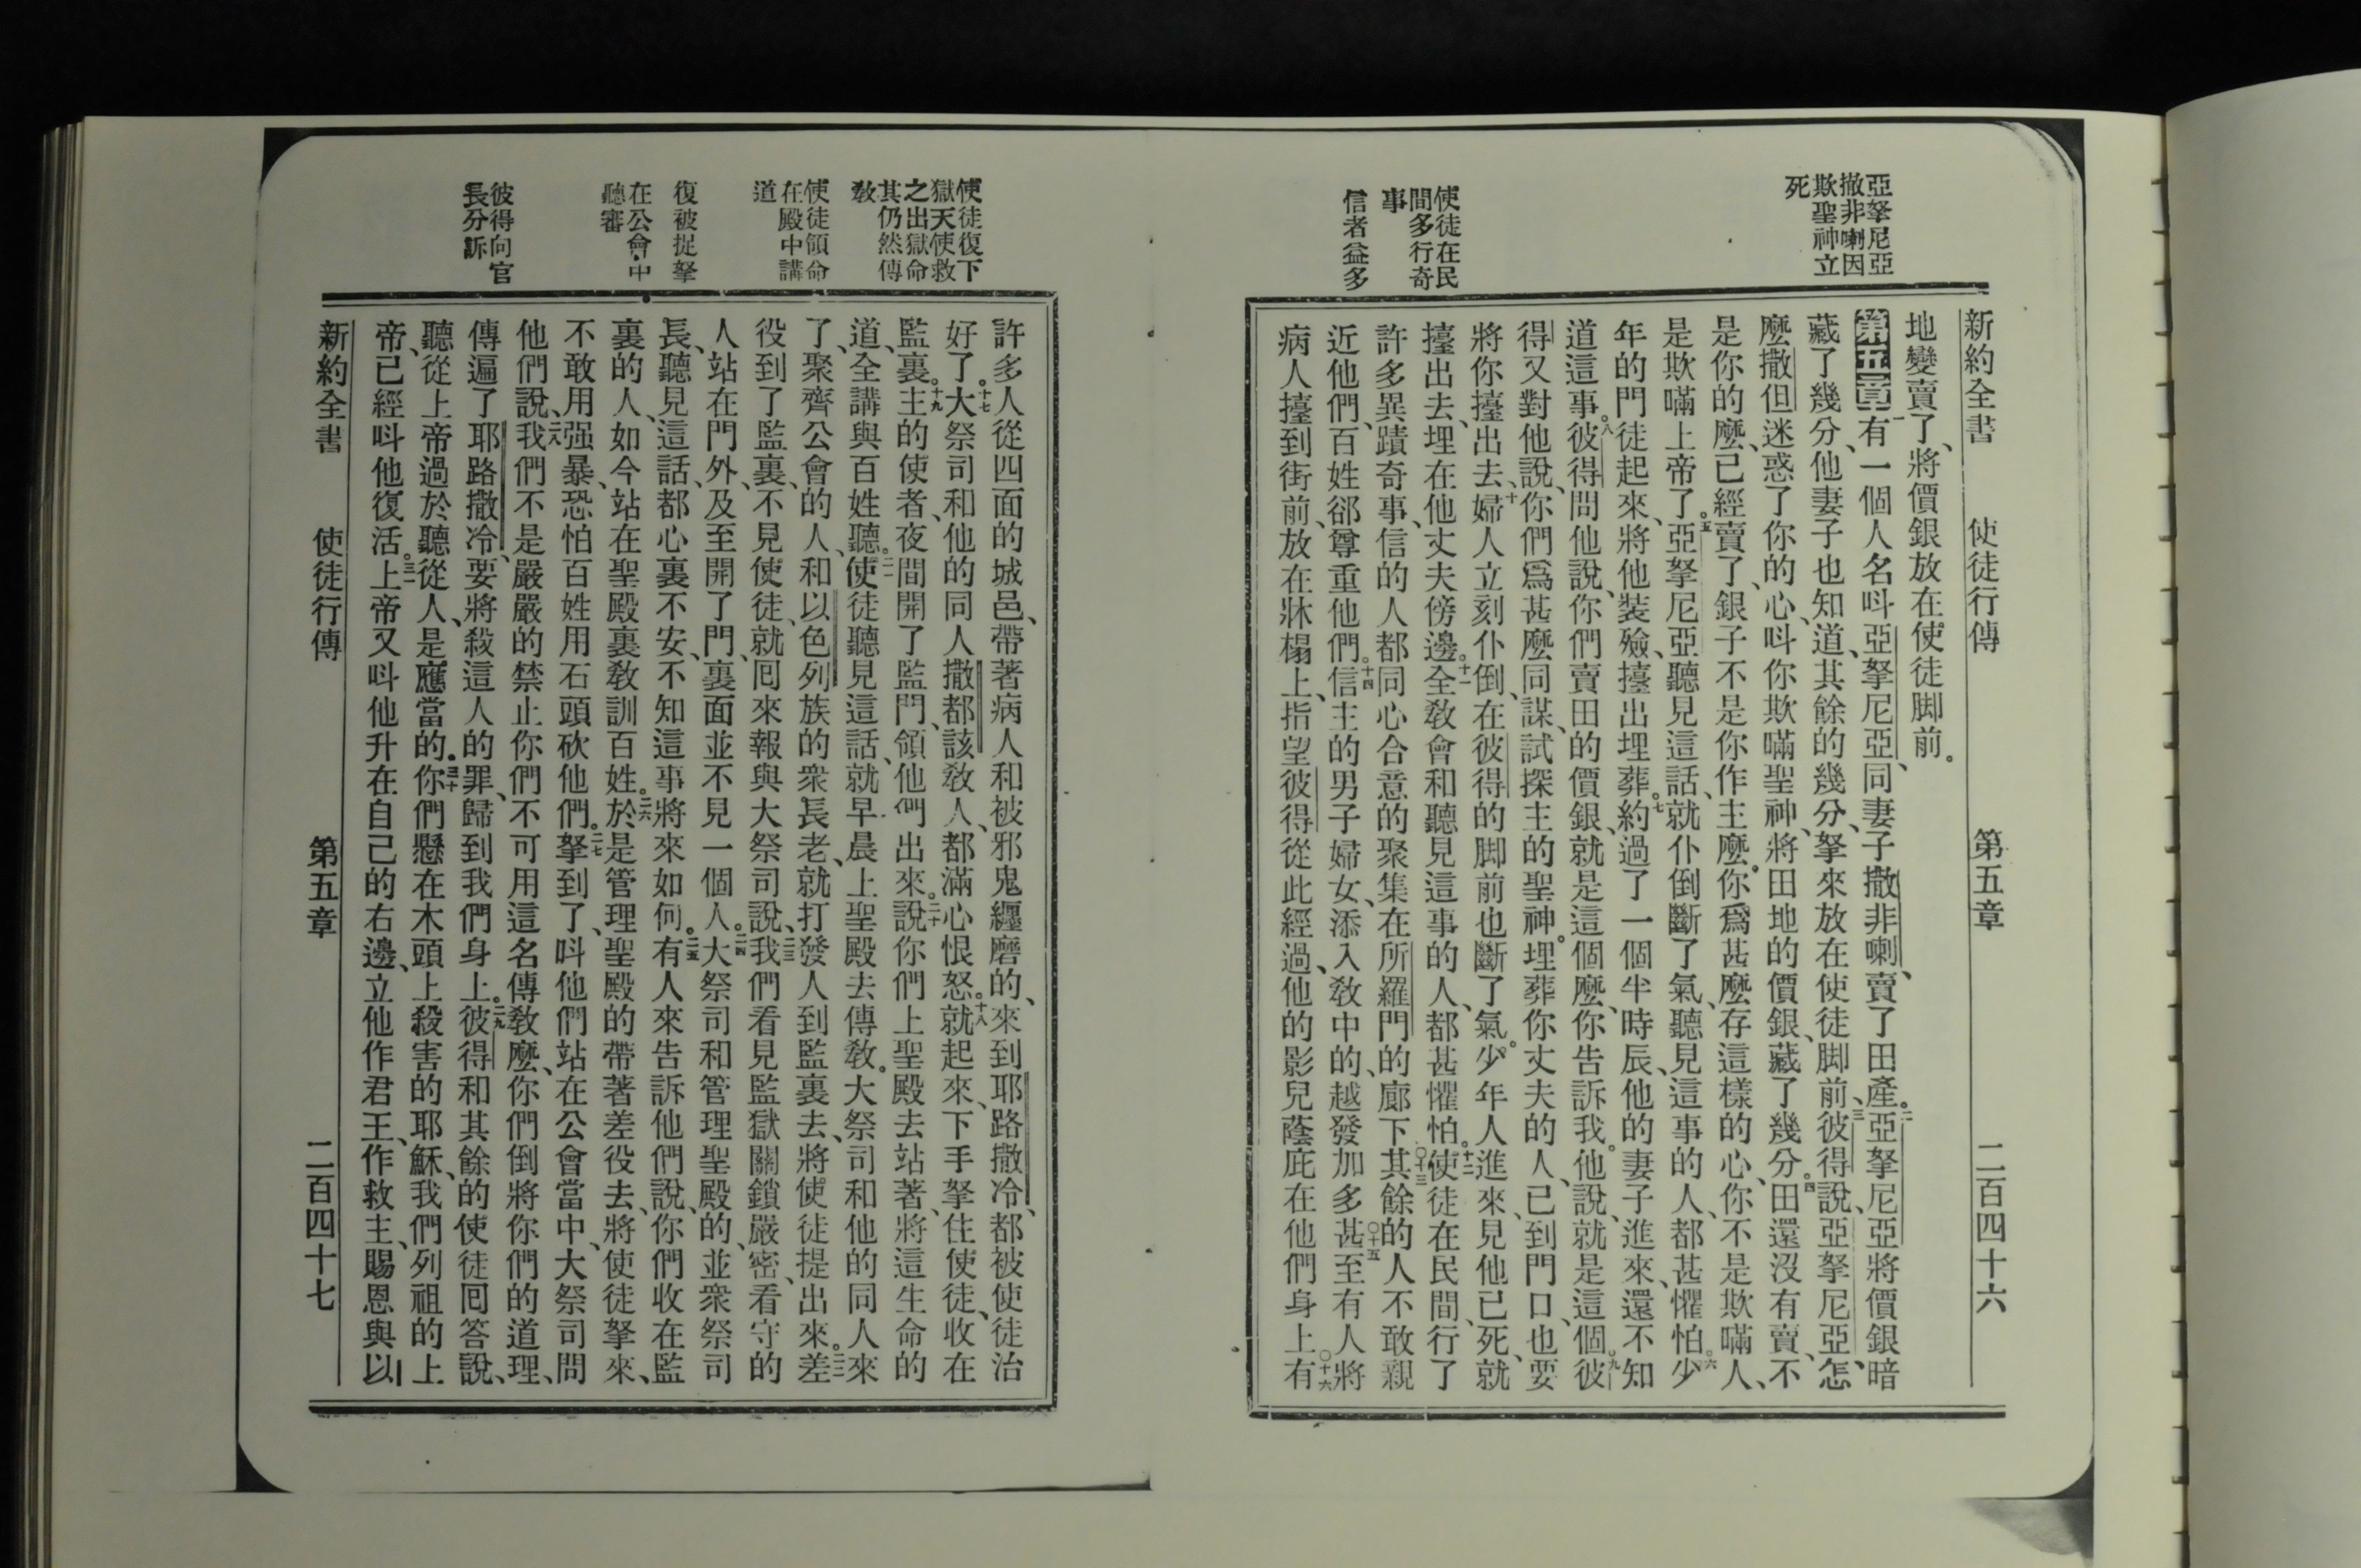 亞拏尼亞
撒非喇因
欺聖神立
死
使徒在民
間多行奇
事
信者益多
新約全書 使徒行傳 第五章 二百四十六
地變賣了、將價銀放在使徒脚前。
第五章 一有一個人名呌亞拏尼亞、同妻子撒非喇、賣了田產。二亞拏尼亞將價銀暗
藏了幾分、他妻子也知道、其餘的幾分、拏來放在使徒脚前、三彼得說、亞拏尼亞、怎
麽撒但迷惑了你的心、呌你欺瞞聖神、將田地的價銀、藏了幾分。四田還沒有賣、不
是你的麽、已經賣了、銀子不是你作主麽。你爲甚麽存這樣的心、你不是欺瞞人、
是欺瞞上帝了。五亞拏尼亞聽見這話、就仆倒斷了氣、聽見這事的人、都甚懼怕。六少
年的門徒起來、將他裝殮、擡出埋葬。七約過了一個半時辰、他的妻子進來、還不知
道這事。八彼得問他說、你們賣田的價銀、就是這個麽、你告訴我。他說、就是這個。九彼
得又對他說、你們爲甚麽同謀、試探主的聖神。埋葬你丈夫的人、已到門口、也要
將你擡出去、十婦人立刻仆倒、在彼得的脚前也斷了氣。少年人進來、見他已死、就
擡出去、埋在他丈夫傍邊。十一全敎會和聽見這事的人、都甚懼怕。十二使徒在民間、行了
許多異蹟奇事、信的人都同心合意的聚集在所羅門的廊下。十三其餘的人不敢親
近他們、百姓郤尊重他們。十四信主的男子婦女、添入敎中的、越發加多。十五甚至有人將
病人擡到街前、放在牀榻上、指望彼得從此經過、他的影兒蔭庇在他們身上。十六有
使徒復下
獄天使救
之出獄命
其仍然傳
敎
使徒領命
在殿中講
道
復被捉拏
在公會中
聽審
彼得向官
長分訴
許多人從四面的城邑、帶著病人和被邪鬼纒磨的、來到耶路撒冷、都被使徒治
好了。十七大祭司和他的同人撒都該敎人、都滿心恨怒。十八就起來、下手拏住使徒、收在
監裏。十九主的使者、夜間開了監門、領他們出來。二十說你們上聖殿去站著、將這生命的
道、全講與百姓聽。二一使徒聽見這話、就早晨上聖殿去傳敎。大祭司和他的同人來
了、聚齊公會的人、和以色列族的衆長老、就打發人到監裏去、將使徒提出來。二二差
役到了監裏、不見使徒、就囘來報與大祭司說、二三我們看見監獄關鎖嚴密、看守的
人站在門外、及至開了門、裏面並不見一個人。二四大祭司和管理聖殿的、並衆祭司
長、聽見這話、都心裏不安、不知這事將來如何。二五有人來告訴他們說、你們收在監
裏的人、如今站在聖殿裏敎訓百姓。二六於是管理聖殿的帶著差役去、將使徒拏來、
不敢用强暴、恐怕百姓用石頭砍他們。二七拏到了、呌他們站在公會當中、大祭司問
他們說、二八我們不是嚴嚴的禁止你們不可用這名傳敎麽、你們倒將你們的道理、
傳遍了耶路撒冷、要將殺這人的罪、歸到我們身上。二九彼得和其餘的使徒囘答說、
聽從上帝過於聽從人、是應當的。三十你們懸在木頭上殺害的耶穌、我們列祖的上
帝、已經呌他復活。三一上帝又呌他升在自己的右邊、立他作君王、作救主、賜恩與以
新約全書 使徒行傳 第五章 二百四十七